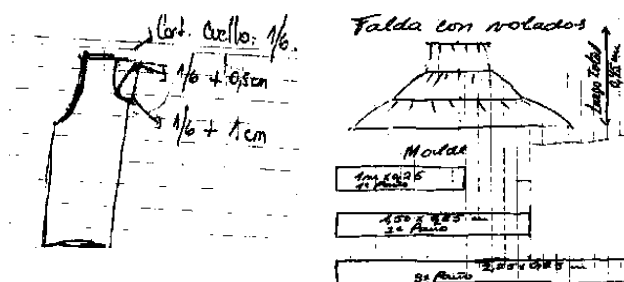 Cont. Cuello: 1/6.
1/6 + 0,5cm
1/6 + 1cm
Falda con volados
Largo total
0,75 m
Molde
1m x 0,25
1º Paño
1,50 x 0,25 m
2º Paño
2,25 x 0,25 m
3º Paño